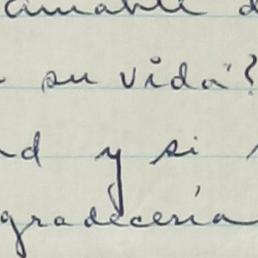 amable d
su vida?
nd y si
gradecería